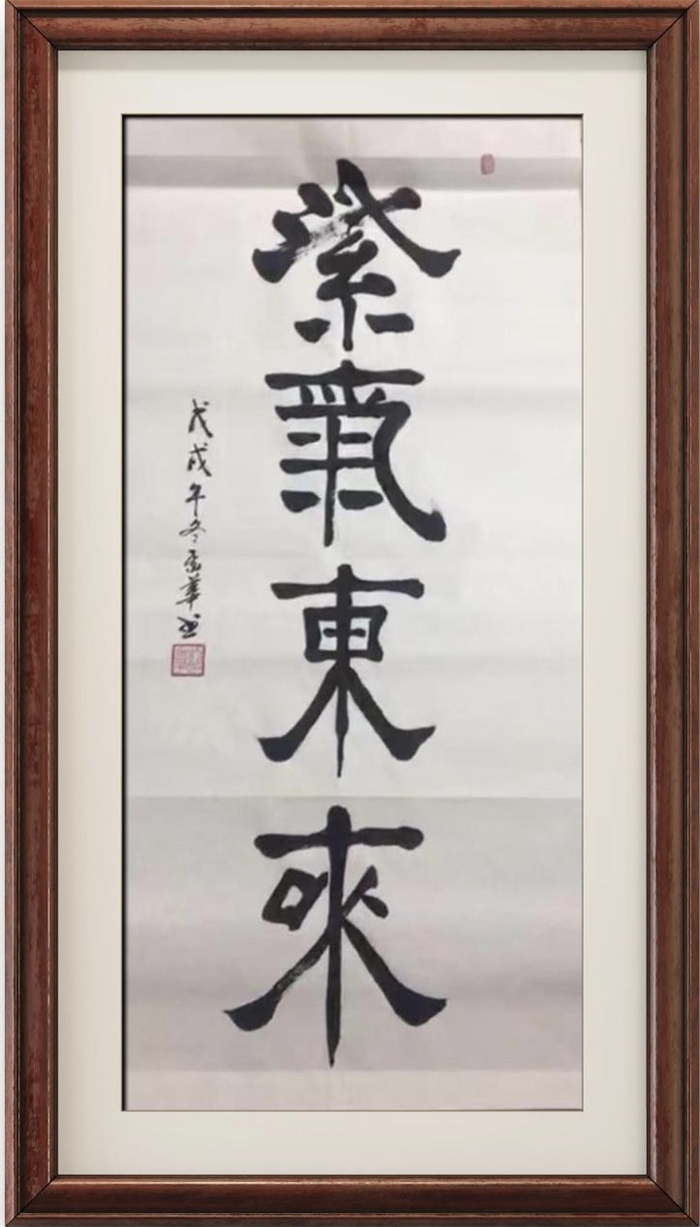 紫氣東來
戊戌年冬岳華书